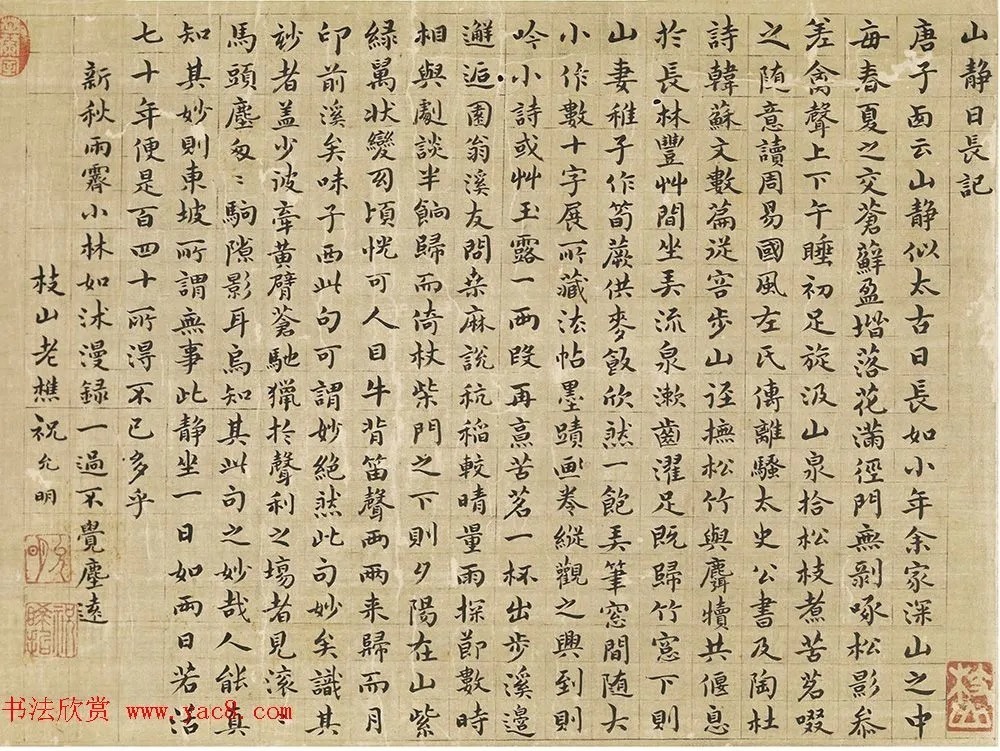 山静日長記
唐子西云山静似太古日長如小年余家深山之中
每春夏之交蒼蘚盈堦落花滿徑門無剥啄松影參
差禽聲上下午睡初足旋汲山泉拾松枝煮苦茗啜
之随意讀周易國風左氏傳離騷太史公書及陶杜
詩韓蘇文數篇從容步山逕撫松竹與麛犢共偃息
於長林豐艸間坐弄流泉漱齒濯足既歸竹窓下則
山妻稚子作筍蕨供麥飯欣然一飽弄筆窓間随大
小作數十字展所藏法帖墨蹟畫卷縱觀之興到則
吟小詩或艸玉露一兩段再烹苦茗一杯出步溪邊
邂逅園翁溪友問桒麻說秔稲較晴量雨探節數時
相與劇談半餉歸而倚杖柴門之下則夕陽在山紫
緑萬状變幻頃恍可人目牛背笛聲兩兩来歸而月
印前溪矣味子西此句可謂妙絶然此句妙矣識其
玅者盖少彼牽黄臂蒼馳獵於聲利之塲者見滚滚
馬頭塵匆匆駒隙影耳烏知其此句之妙哉人能真
知其妙則東坡所謂無事此静坐一日如兩日若活
七十年便是百四十所淂不已多乎
新秋雨霽小林如沐漫録一過不覺塵遠
枝山老樵祝允明
书法欣赏 www.yac8.com